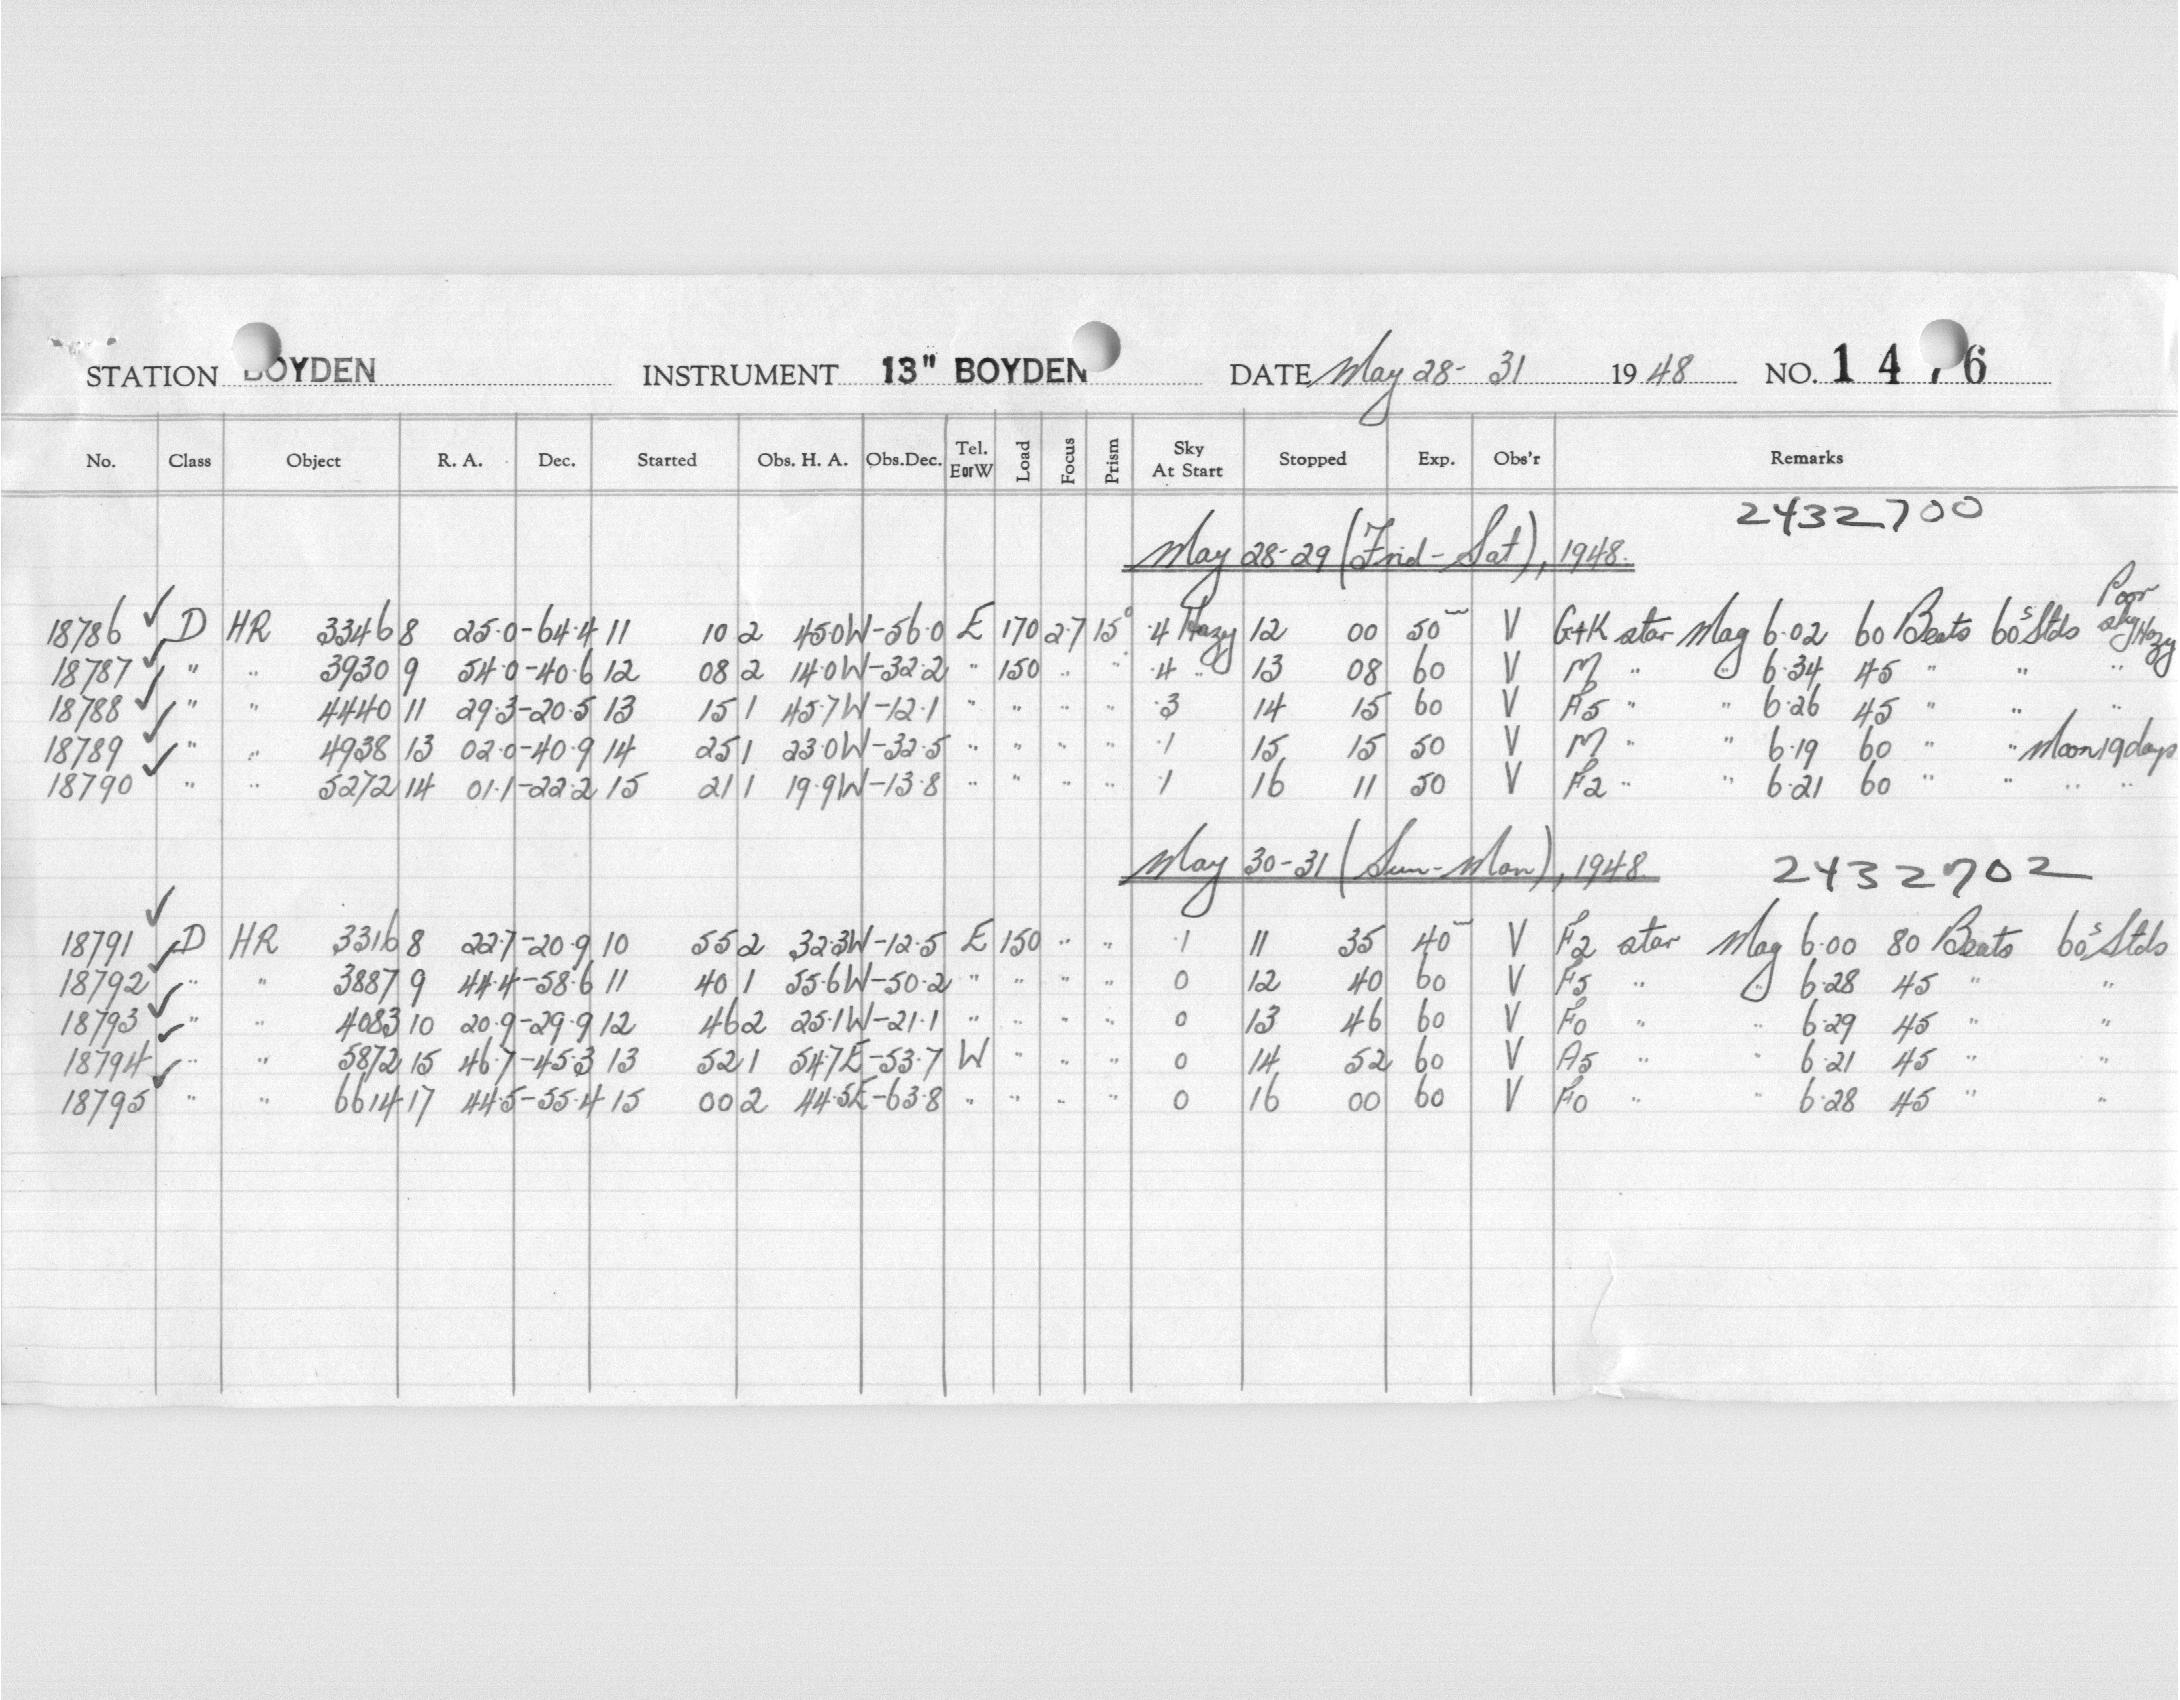 STATION BOYDEN INSTRUMENT 13" BOYDEN DATE May 28- 31 1948 NO. 14 6
No. Class Object R. A. Dec. Started Obs. H. A. Obs.Dec. Tel. EorW Load Focus Prism Sky At Start Stopped Exp. Obs'r Remarks
2432700
May 28-29 (Frid-Sat), 1948.
18786 ✓ D HR 3346 8 25.0 -64.4 11 10 2 45.0W -56.0 E 170 27 15° .4 Hazy 12 00 50 V G+K star Mag 6.02 60 Beats 60ˢ Stds Poor sky/Hazy
18787 ✓ " " 3930 9 54.0 -40.6 12 08 2 14.0W -32.2 " 150 " " .4 " 13 08 60 V M " " 6.34 45 " " "
18788 ✓ " " 4440 11 29.3 -20.5 13 15 1 45.7W -12.1 " " " " .3 14 15 60 V A5 " " 6.26 45 " " "
18789 ✓ " " 4938 13 02.0 -40.9 14 25 1 23.0W -32.5 " " " " .1 15 15 50 V M " " 6.19 60 " " Moon 19 days
18790 ✓ " " 5272 14 01.1 -22.2 15 21 1 19.9W -13.8 " " " " .1 16 11 50 V F2 " " 6.21 60 " " " "
May 30-31 (Sun-Mon), 1948. 2432702
18791 ✓ D HR 3316 8 22.7 -20.9 10 55 2 32.3W -12.5 E 150 " " .1 11 35 40 V F2 star Mag 6.00 80 Beats 60ˢ Stds
18792 ✓ " " 3887 9 44.4 -58.6 11 40 1 55.6W -50.2 " " " " 0 12 40 60 V F5 " " 6.28 45 " "
18793 ✓ " " 4083 10 20.9 -29.9 12 46 2 25.1W -21.1 " " " " 0 13 46 60 V F0 " " 6.29 45 " "
18794 ✓ " " 5872 15 46.7 -45.3 13 52 1 54.7E -53.7 W " " " 0 14 52 60 V A5 " " 6.21 45 " "
18795 ✓ " " 6614 17 44.5 -55.4 15 00 2 44.5E -63.8 " " " " 0 16 00 60 V F0 " " 6.28 45 " "